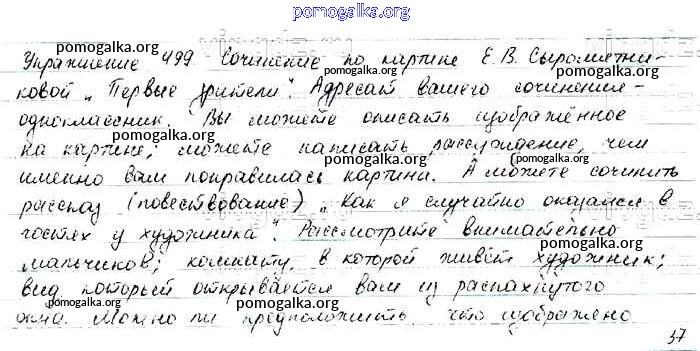 pomogalka.org
Упражнение 499. Сочинение по картине Е.В. Сыромятни-
ковой „Первые зрители". Адресат вашего сочинения -
одноклассник. Вы можете описать изображённое
на картине; можете написать рассуждение, чем
именно вам понравилась картина. А можете сочинить
рассказ (повествование) „Как я случайно оказался в
гостях у художника". Рассмотрите внимательно
мальчиков; комнату, в которой живёт художник;
вид, который открывается вам из распахнутого
окна. Можно ли предположить, что изображено
37
pomogalka.org
pomogalka.org
pomogalka.org
pomogalka.org
pomogalka.org
pomogalka.org
pomogalka.org
pomogalka.org
pomogalka.org
pomogalka.org